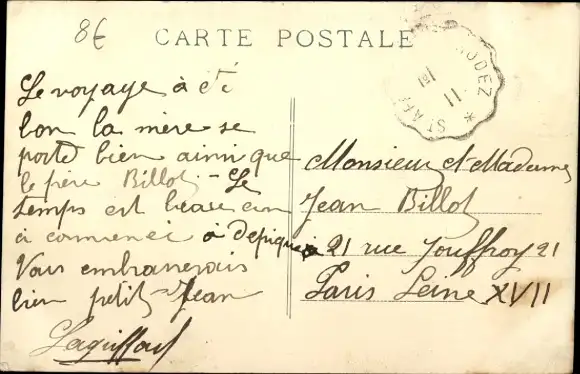 8€
CARTE POSTALE
RODEZ
ST AF
11
Le voyage à été
bon la mère se
porte bien ainsi que
le frère Billot - Le
temps est beau on
a commencé à depiquer
Vous embrasserais
bien petit Jean
Monsieur et Madame
Jean Billot
21 rue Jouffroy 21
Paris Seine XVII